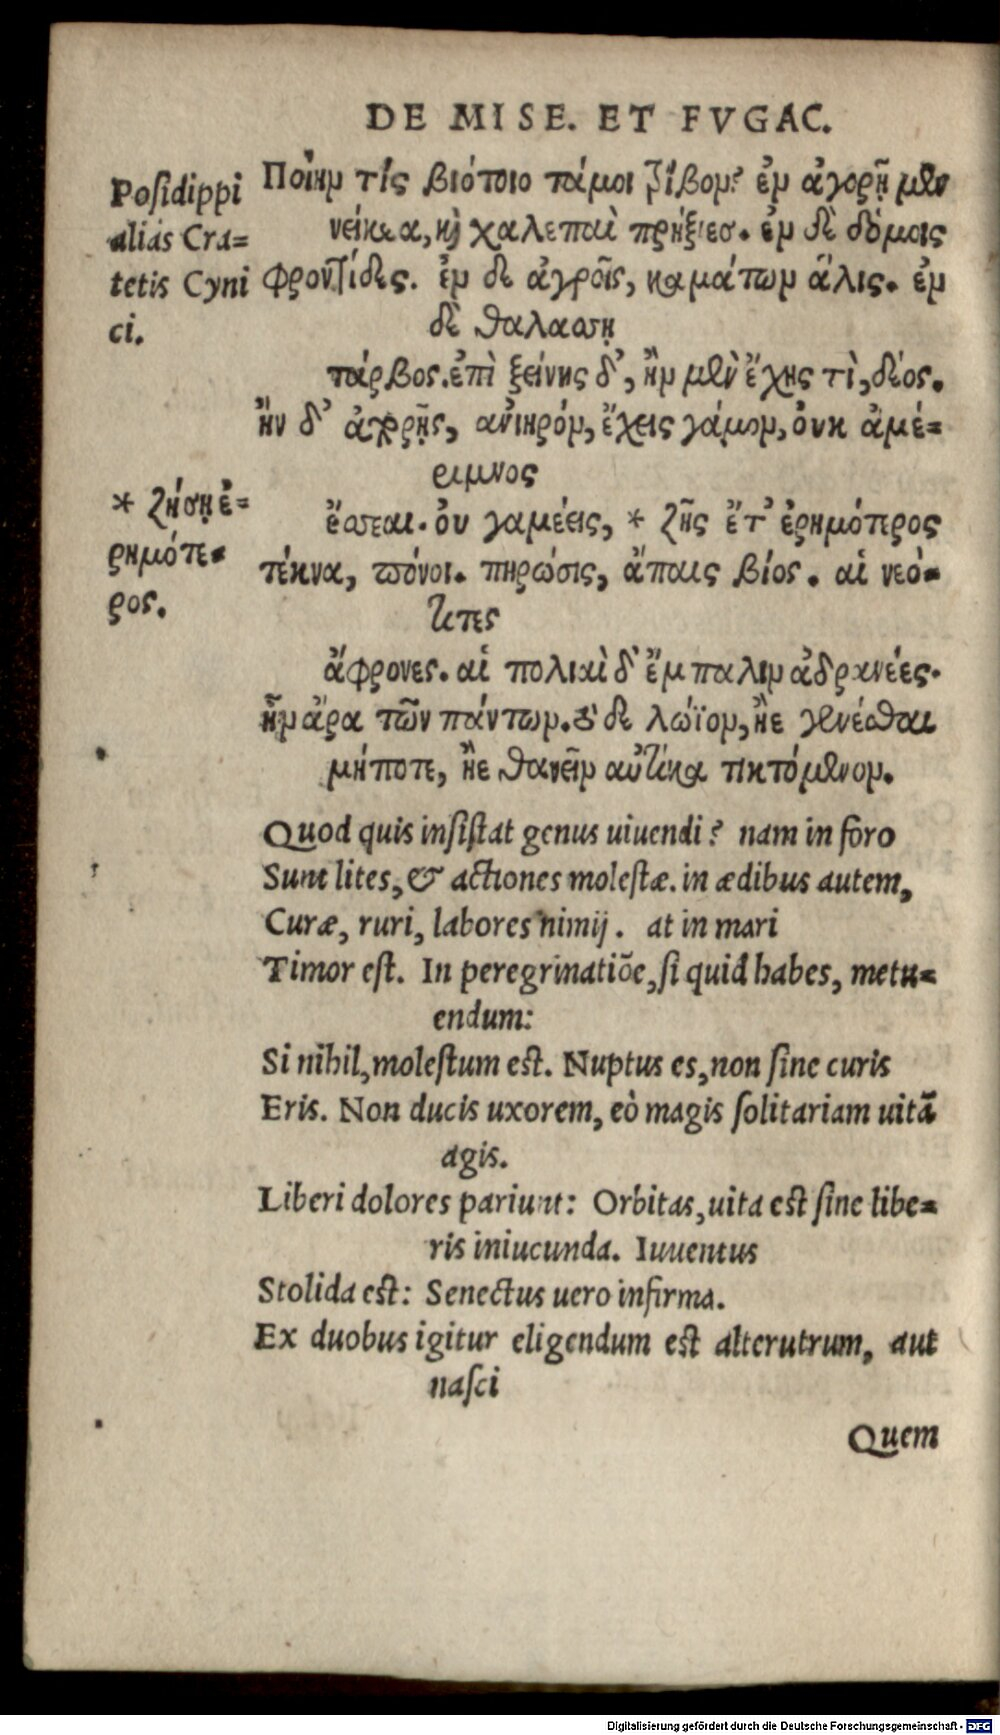 DE MISE. ET FVGAC.
Posidippi
aliás Cra=
tetis Cyni
ci.
Ποίην τίς βιότοιο τάμοι τρίβον? ἐν ἀγορῇ μὲν
νείκεα, καὶ χαλεπαὶ πρήξιες. ἐν δὲ δόμοις
φροντίδες. ἐν δε ἀγροῖς, καμάτων ἅλις. ἐν
δὲ θαλασσῃ
τάρβος. ἐπὶ ξείνης δ', ἢν μὲν ἔχῃς τὶ, δέος.
ἢν δ' ἀπορῇς, ἀνιηρόν, ἔχεις γάμον, ὀυκ ἀμέ=
ριμνος
ἔσσεαι. ὀυ γαμέεις, * ζῇς ἔτ' ἐρημότερος
* ζήσῃ ἐ=
ρημότε=
ρος.
τέκνα, πόνοι. πηρώσις, ἄπαις βίος. αἱ νεό=
τητες
ἄφρονες. αἱ πολιαὶ δ' ἔμπαλιν ἀδρανέες.
ἦν ἄρα τῶν πάντων. τό δε λώϊον, ἢε γενέσθαι
μήποτε, ἢε θανεῖν αὐτίκα τικτόμενον.
Quod quis insistat genus uiuendi? nam in foro
Sunt lites, & actiones molestæ. in ædibus autem,
Curæ, ruri, labores nimij. at in mari
Timor est. In peregrinatiõe, si quid habes, metu=
endum:
Si nihil, molestum est. Nuptus es, non sine curis
Eris. Non ducis uxorem, eò magis solitariam uitã
agis.
Liberi dolores pariunt: Orbitas, uita est sine libe=
ris iniucunda. Iuuentus
Stolida est: Senectus uero infirma.
Ex duobus igitur eligendum est alterutrum, aut
nasci
Quem
Digitalisierung gefördert durch die Deutsche Forschungsgemeinschaft - DFG